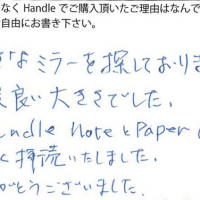 なく Handle でご購入頂いたご理由はなんで
自由にお書き下さい。
なミラーを探しており
良い大きさでした。
ndle Note と Paper
く拝読いたしました。
がとうございました。